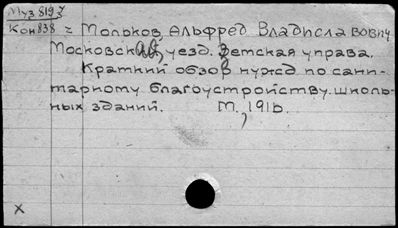 Муз 819 z
Кон 838 = Мольков, Альфред Владисла вович
Московская, уезд. Земская управа.
Краткий обзор нужд по сани-
тарному благоустройству школь-
ных зданий. М., 191
х